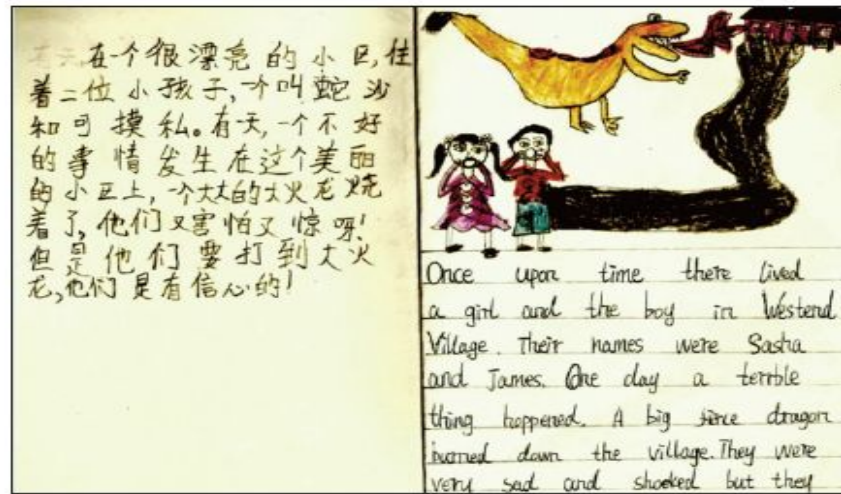 有天,在一个很漂亮的小区,住
着二位小孩子,一个叫蛇沙
和可摸私。有一天,一个不好
的事情发生在这个美丽
的小区上,一个大大的大火龙烧
着了,他们又害怕又惊呀!
但是他们要打到大火
龙,他们是有信心的!
Once upon time there lived
a girl and the boy in Westend
Village. Their names were Sasha
and James. One day a terrble
thing happened. A big firce dragon
burned down the village. They were
very sad and shocked but they